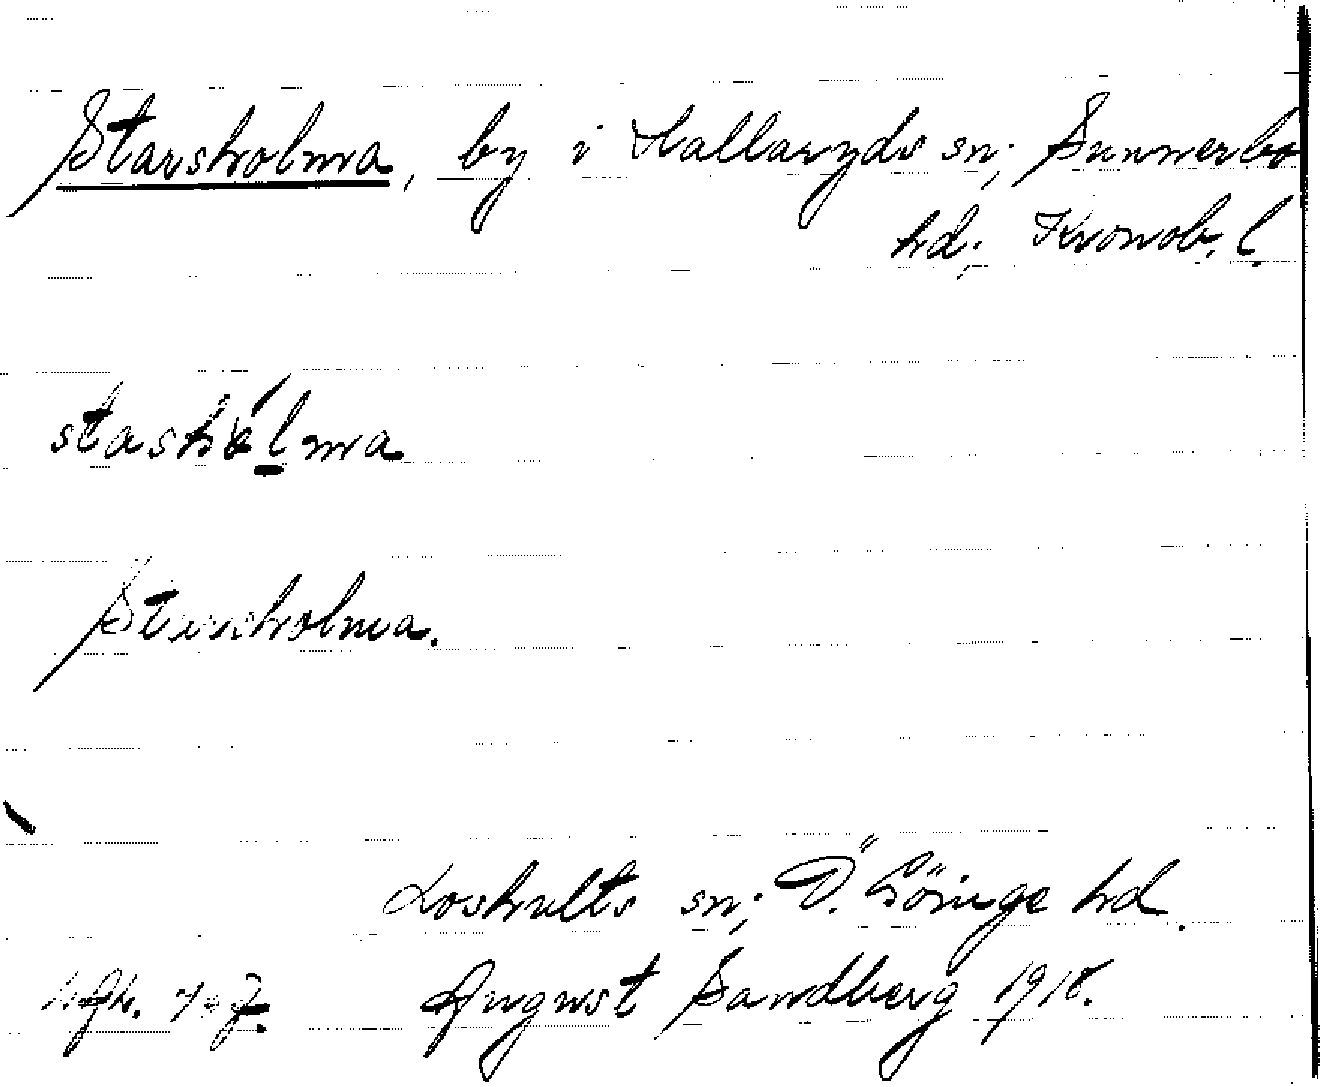 Starsholma, by i Hallaryds sn; Sunnerbo
hd; Kronob. l.
stashólma
Starsholma.
Loshults sn; Ö. Göinge hd.
August Sandberg 1918.